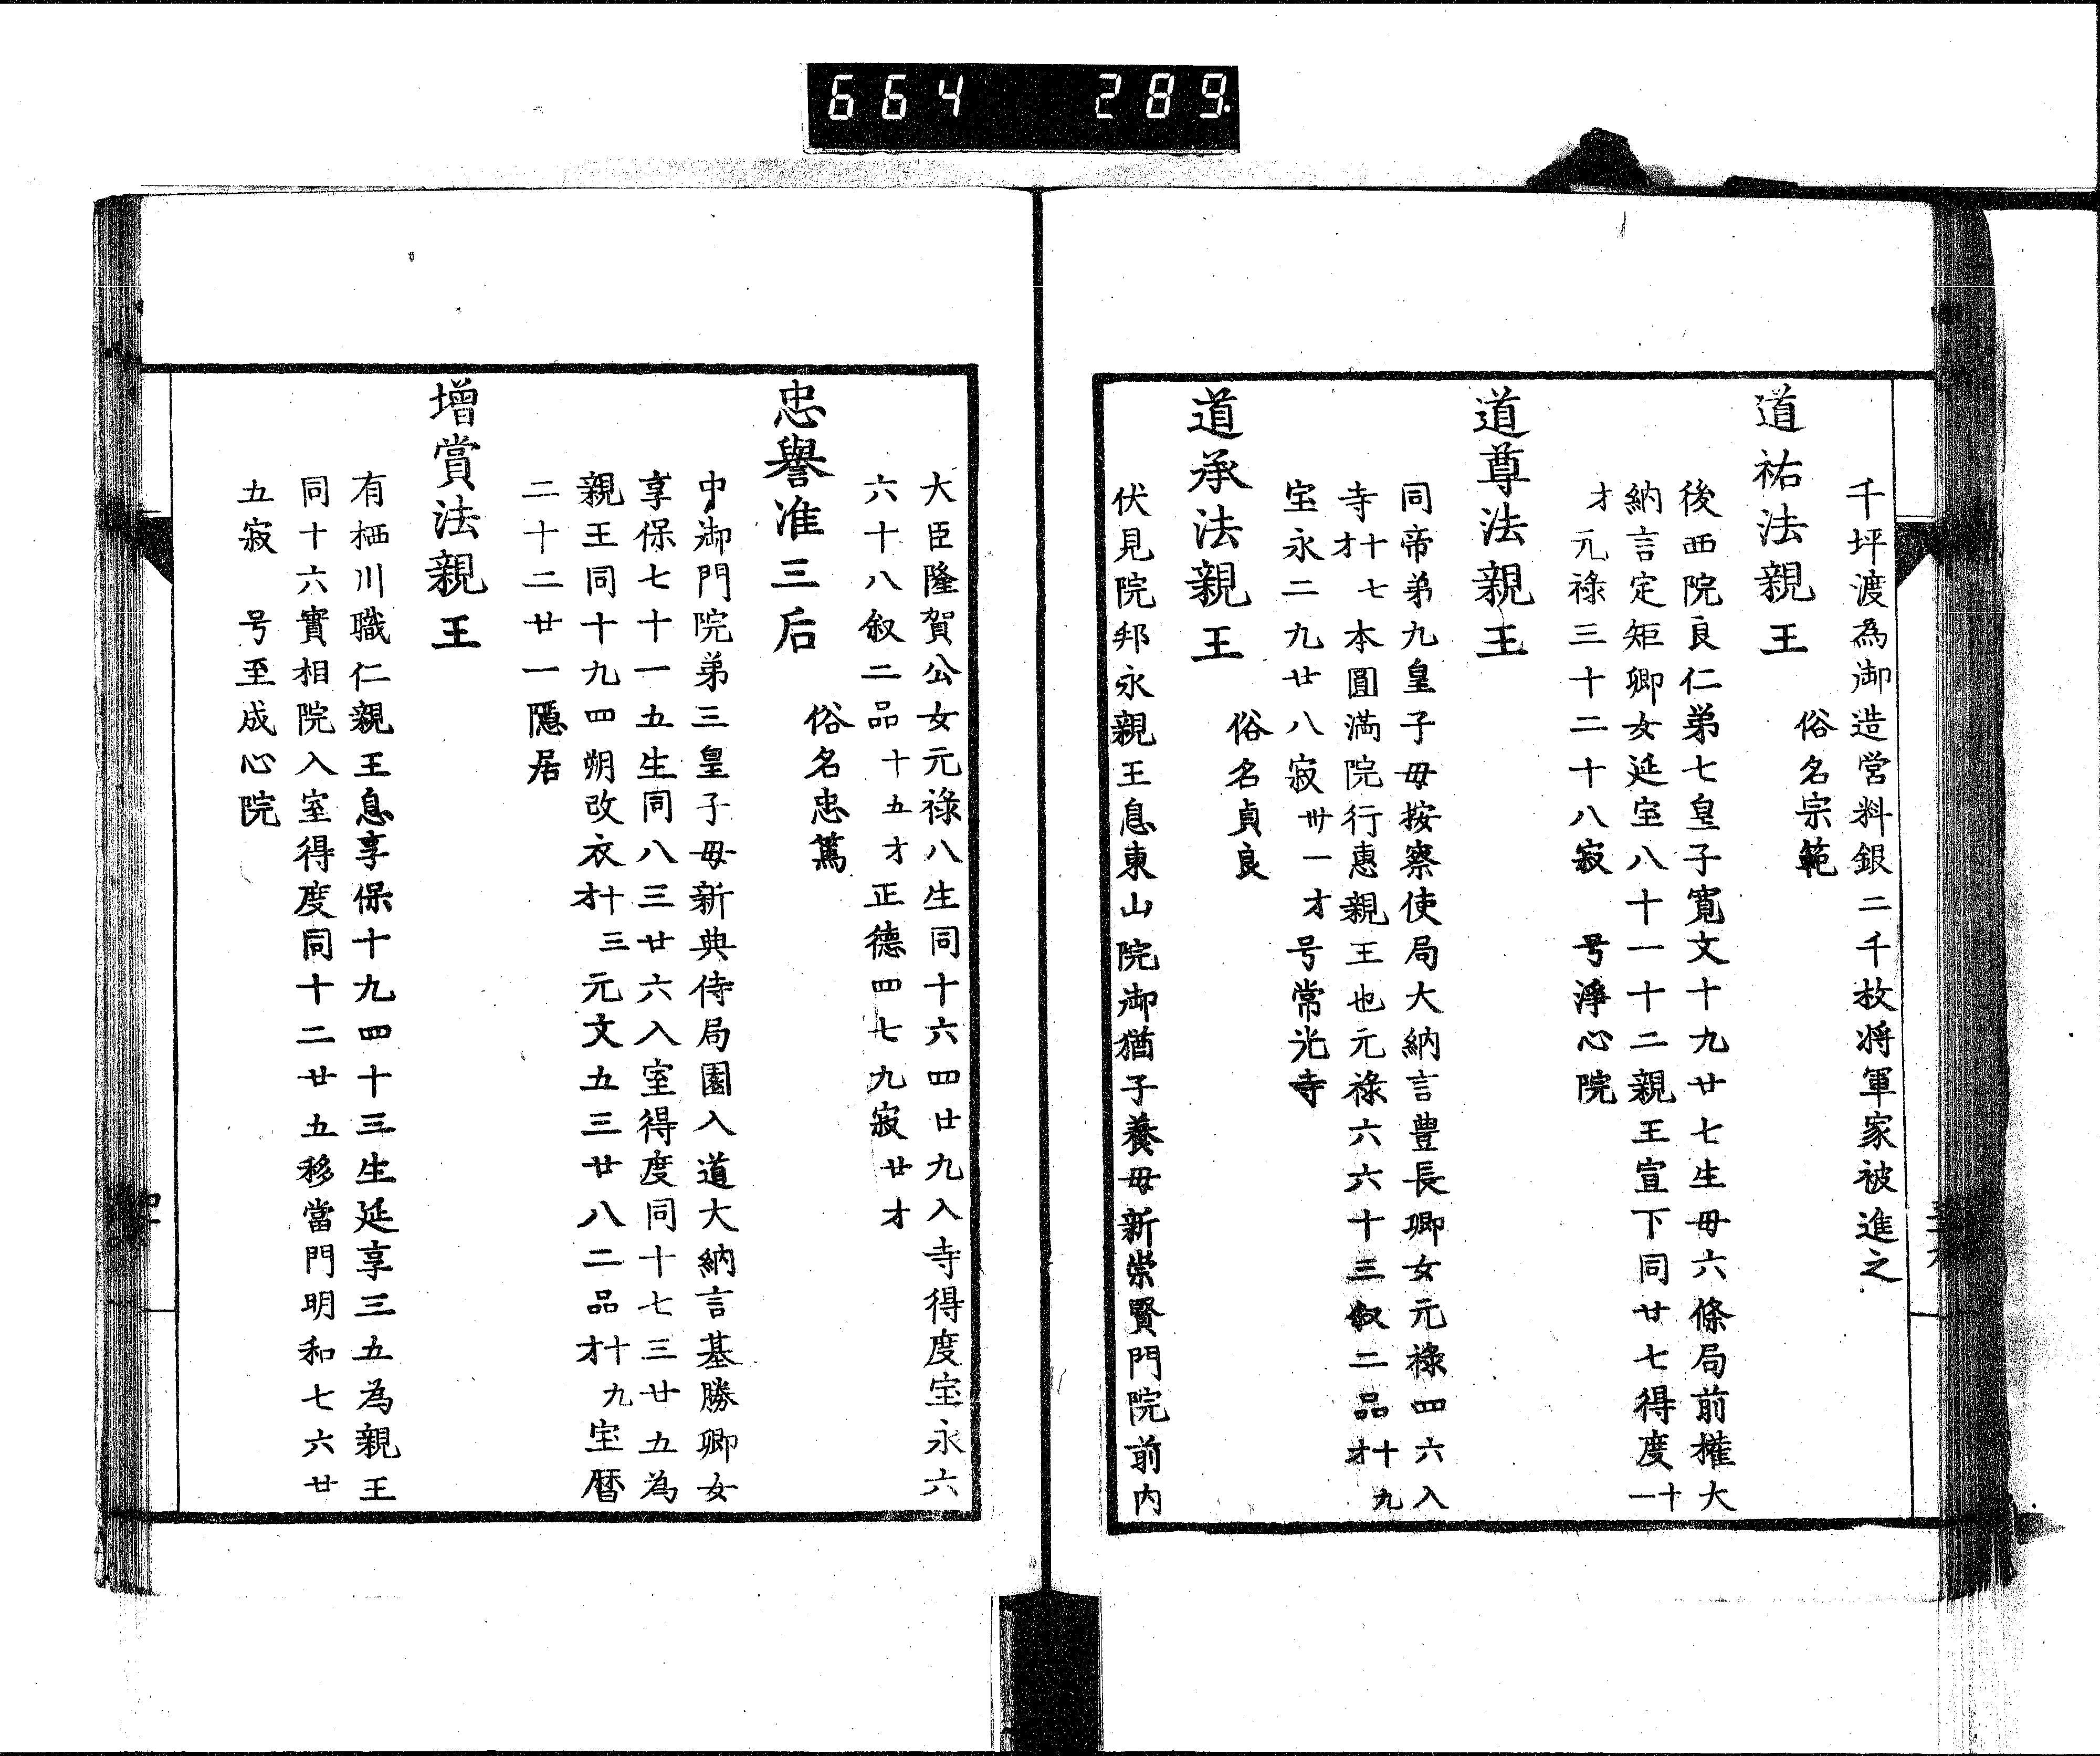 664 289.
千坪渡為御造営料銀二千枚将軍家被進之
道祐法親王 俗名宗範
後西院良仁弟七皇子寛文十九廿七生毋六條局前権大
納言定矩卿女延宝八十一十二親王宣下同廿七得度十一
才元禄三十二十八寂 号淨心院
道尊法親王
同帝弟九皇子毋按察使局大納言豊長卿女元禄四六入
寺十七才本圓満院行惠親王也元禄六六十三叙二品十九才
宝永二九廿八寂卅一才号常光寺
道承法親王 俗名貞良
伏見院邦永親王息東山院御猶子養毋新崇賢門院前内
大臣隆賀公女元禄八生同十六四廿九入寺得度宝永六
六十八叙二品十五才正德四七九寂廿才
忠譽准三后 俗名忠篤
中御門院弟三皇子毋新典侍局園入道大納言基勝卿女
享保七十一五生同八三廿六入室得度同十七三廿五為
親王同十九四朔改衣十三才元文五三廿八二品十九才宝暦
二十二廿一隱居
增賞法親王
有栖川職仁親王息享保十九四十三生延享三五為親王
同十六實相院入室得度同十二廿五移當門明和七六廿
五寂 号至成心院